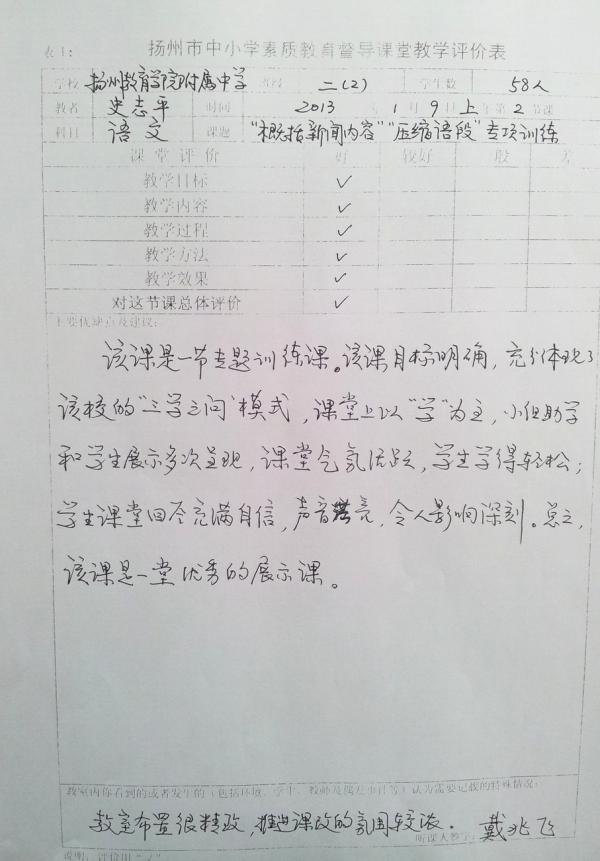 表1: 扬州市中小学素质教育督导课堂教学评价表
学校 扬州教育学院附属中学 班级 二(2) 学生数 58人
教者 史志平 时间 2013年1月9日上午第2节课
科目 语文 课题 “概括新闻内容”“压缩语段”专项训练
课堂评价 好 较好 一般 差
教学目标 ✓
教学内容 ✓
教学过程 ✓
教学方法 ✓
教学效果 ✓
对这节课总体评价 ✓
主要优缺点及建议:
该课是一节专题训练课。该课目标明确，充分体现了
该校的“三学三问”模式，课堂上以“学”为主，小组助学
和学生展示多次呈现，课堂气氛活跃，学生学得轻松；
学生课堂回答充满自信，声音亮，令人影响深刻。总之，
该课是一堂优秀的展示课。
教室内你看到的或者发生的（包括环境、学生、教师及偶发事件等）认为需要记载的特殊情况:
教室布置很精致，推进课改的氛围较浓．
听课人签字: 戴兆飞
说明: 评价用“✓”